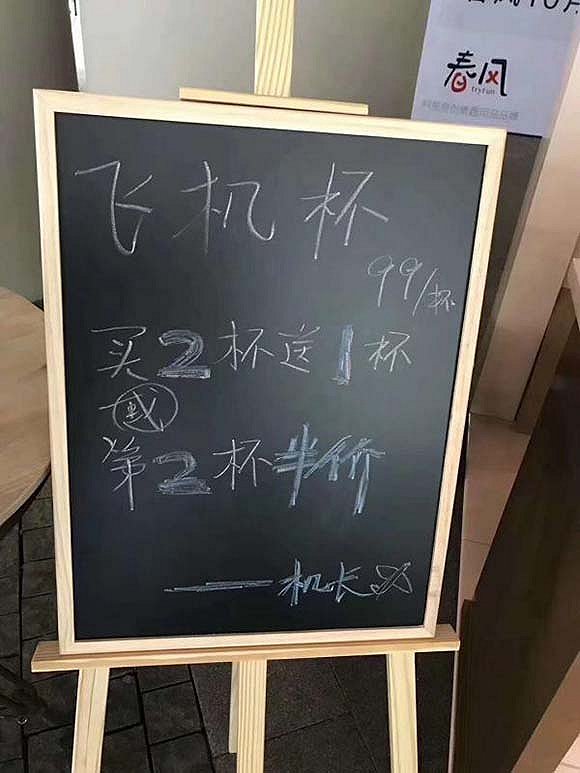 春风
tryfun
飞机杯
99/杯
买2杯送1杯
或
第2杯半价
——机长